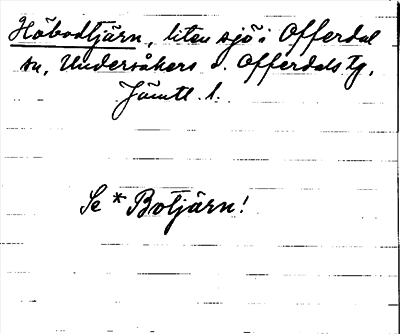 Häbodtjärn, liten sjö i Offerdal
sn, Undersåkers o. Offerdals tg,
Jämtl. l.
Se * Botjärn!